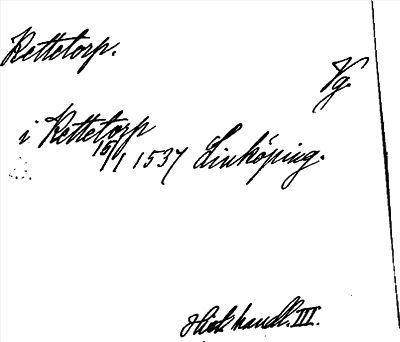 Kettetorp.
Vg.
i Kettetorp
15/1 1537 Linköping.
Hist handl. III.